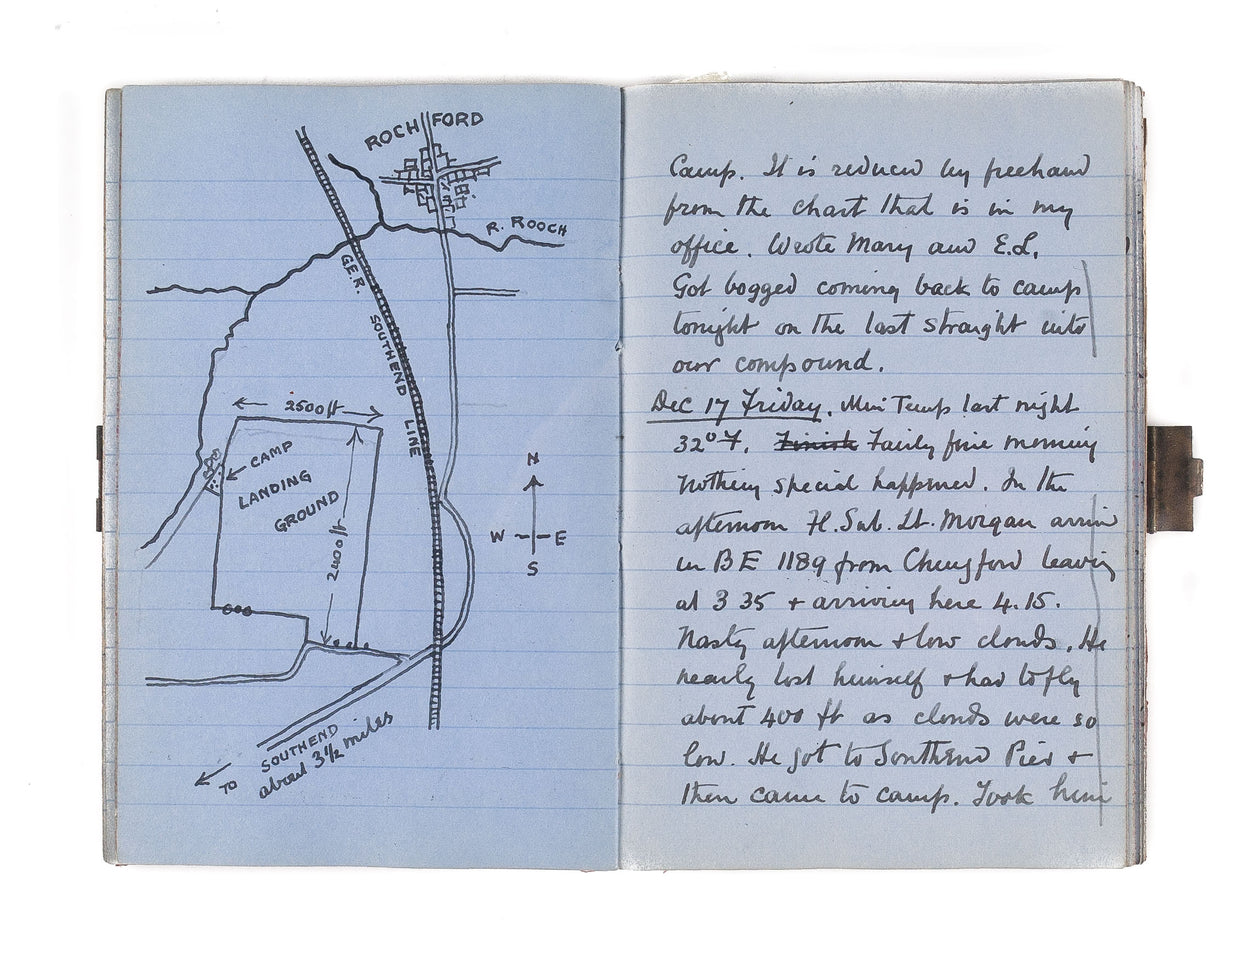 ROCHFORD
R. ROOCH
G.E.R. SOUTHEND LINE
2500 ft
CAMP
LANDING
GROUND
2400 ft
N
W E
S
TO SOUTHEND
about 3½ miles
Camp. It is reduced by freehand
from the chart that is in my
office. Wrote Mary and E.L.
Got bogged coming back to camp
tonight on the last straight into
our compound.
Dec 17 Friday. Min Temp last night
32° F. Finish Fairly fine morning
Nothing special happened. In the
afternoon Fl. Sub. Lt. Morgan arrived
in BE 1189 from Chingford leaving
at 3 35 + arriving here 4.15.
Nasty afternoon + low clouds. He
nearly lost himself + had to fly
about 400 ft as clouds were so
low. He got to Southend Pier +
then came to camp. Took him